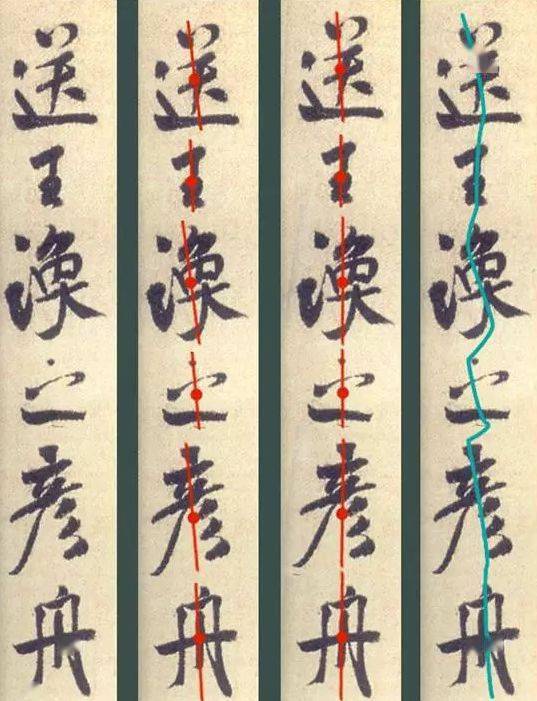 送王渙之彥舟
送王渙之彥舟
送王渙之彥舟
送王渙之彥舟